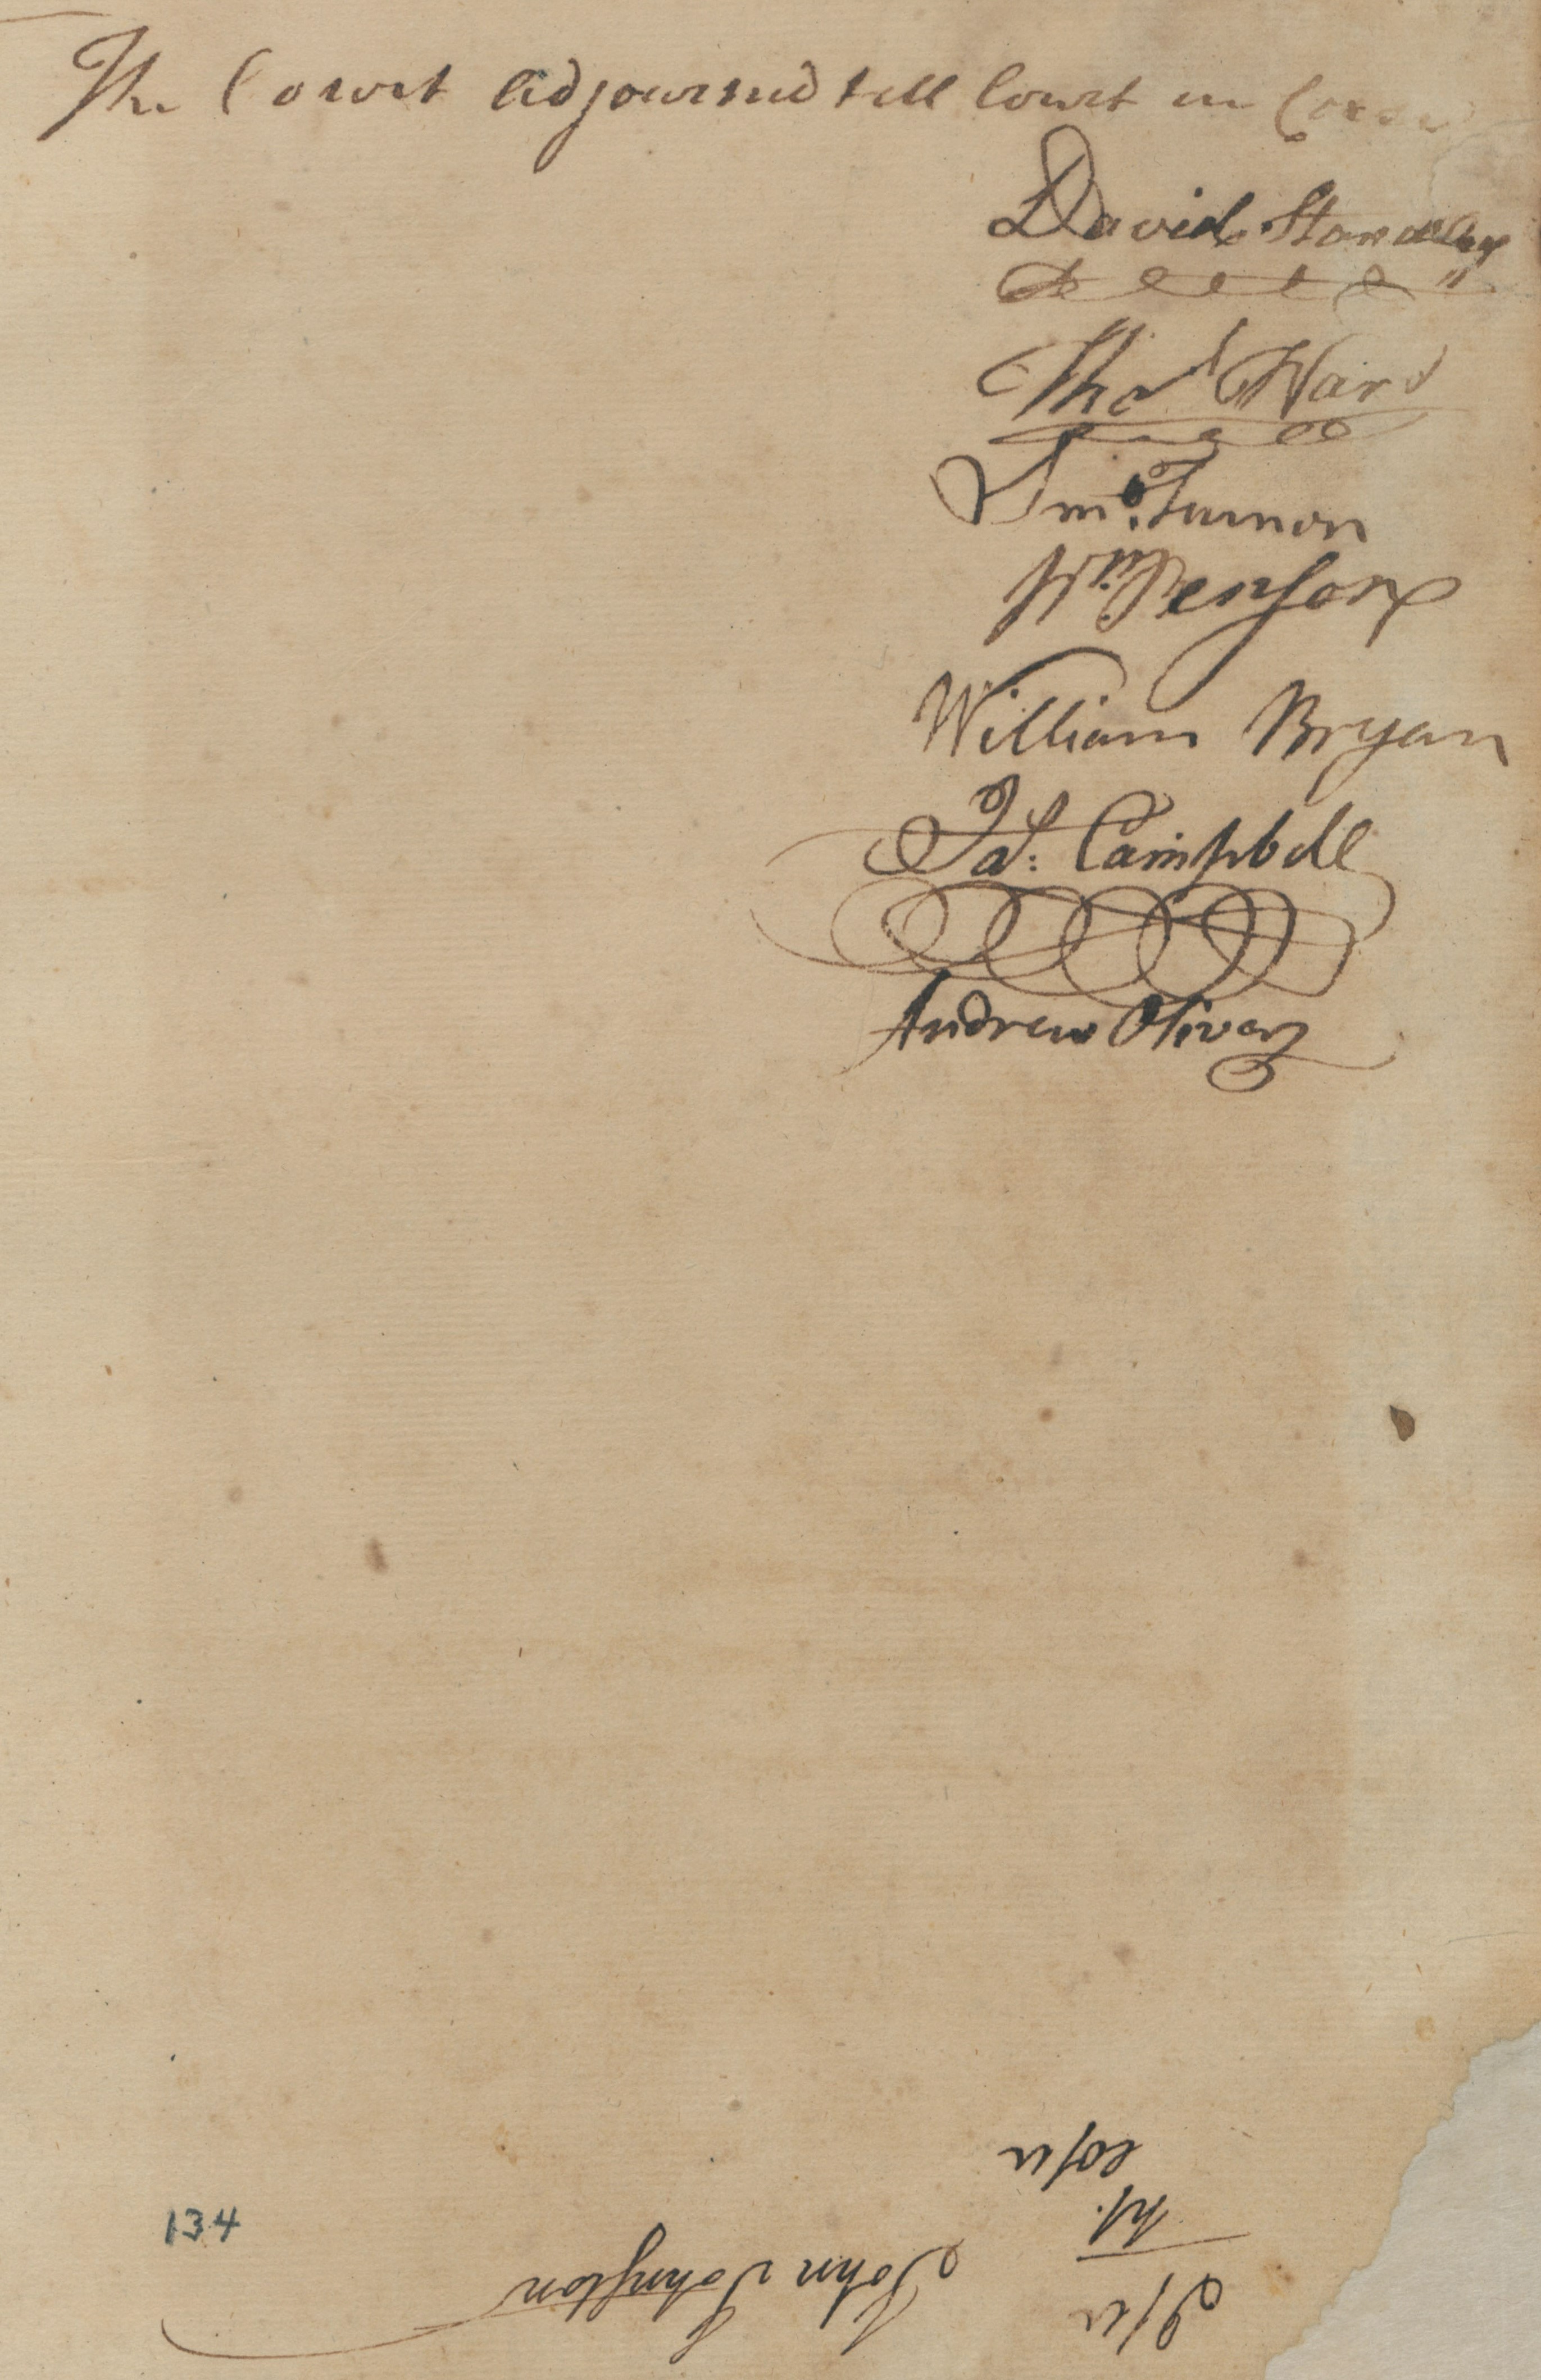 The Court Adjournd till Court in Cours
David Standley
Thos Ward
Sml. Turner
Wm Henson
William Bryan
Jas. Campbell
Andrew Oliver
134
John Johnston